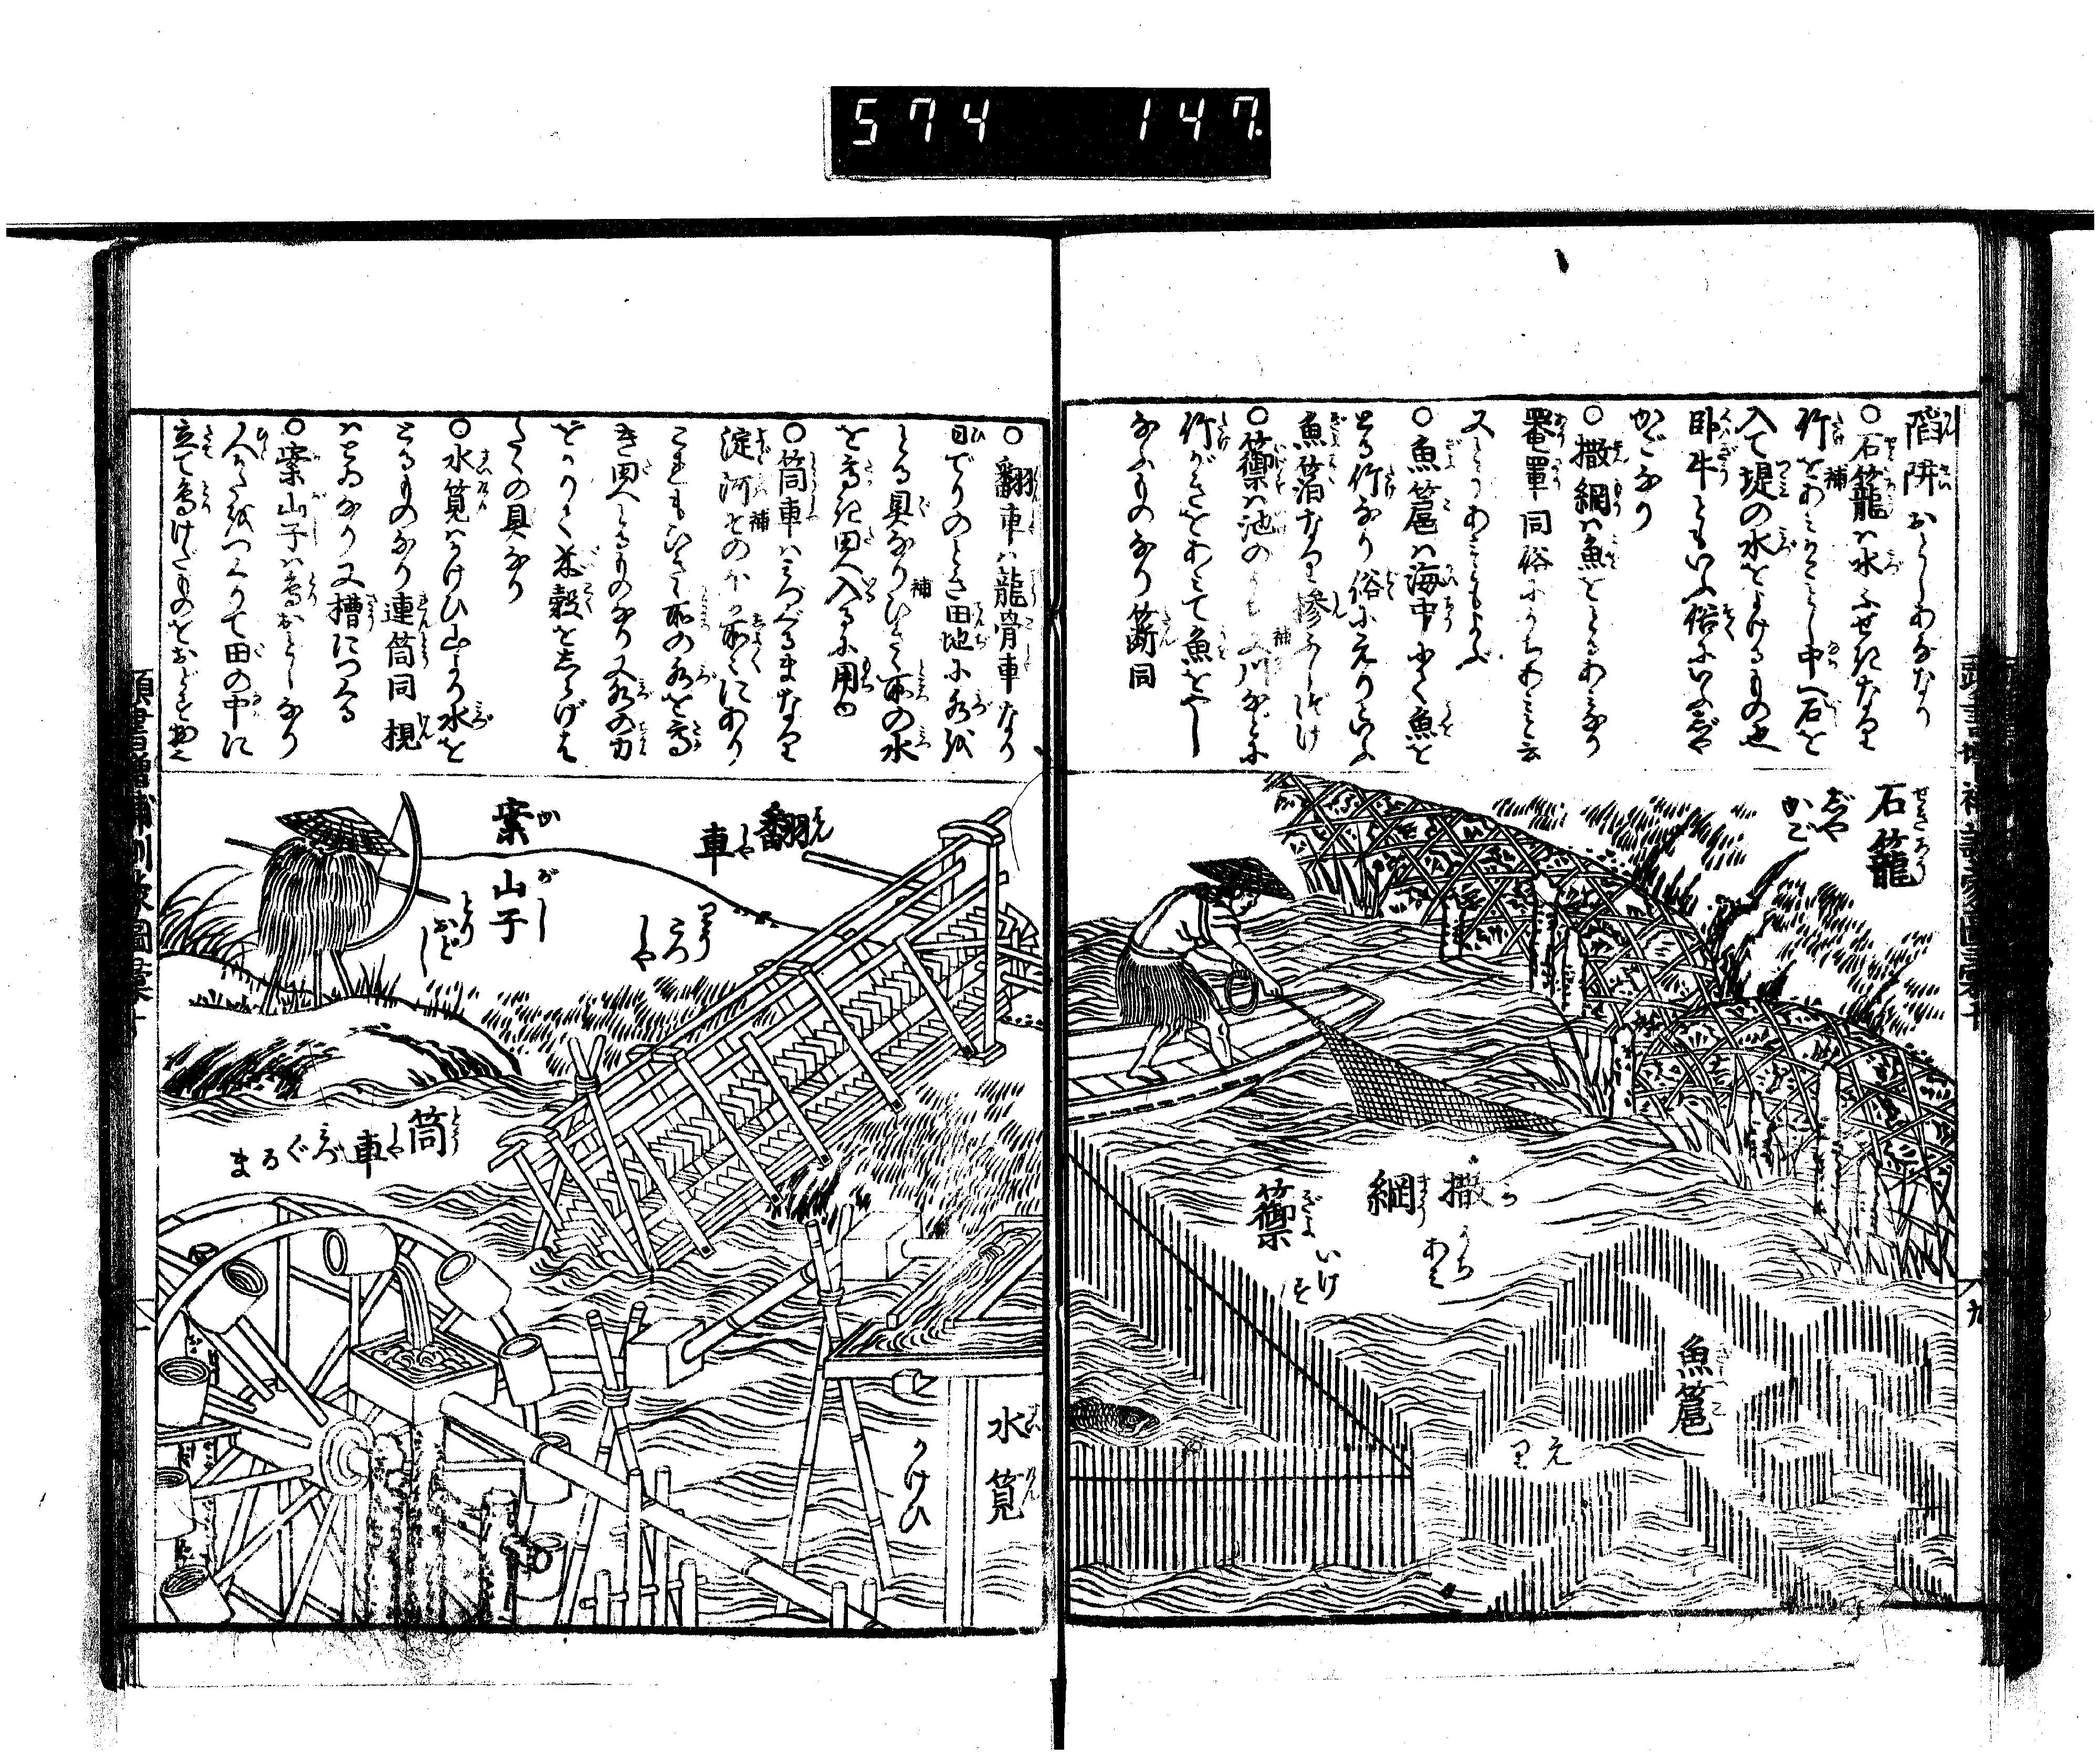 574 147.
陷阱おとしあななり
○石籠ハ水ふせぎなり
竹をあみかごとし中へ石を
入て堤の水をよけるもの也
臥牛ともいふ俗にいふじや
かごなり
○撒網ハ魚をとるあみなり
罨罩同俗にうちあみと云
又とあみともよぶ
○魚箙ハ海中にて魚を
とる竹なり俗にえりといふ
魚箔なり
○篽ハ池の 又川などに
竹がきをあみて魚をやし
なふものなり 同
○翻車ハ龍骨車なり
日でりのとき田地に水を
とる具なりひきく所の水
を高き田へ入るに用ゆ
○筒車ハみづぐるまなり
淀河そのほか所々にあり
これもひきき所の水を高
き田へとるものなり又水の力
をかりて米穀をしらげる
ための具なり
○水筧ハかけひ山より水を
とるものなり連筒同
ハとゐなり又槽につくる
○案山子ハ鳥おどしなり
人かたをつくりて田の中に
立て鳥けだものをおどす也
石籠
せきろう
じや
かご
撒網
うちあみ
篽
ぎよ
いけす
魚箙
えり
翻車
りうこつしや
案山子
かがし
とりおどし
筒車
みづぐるま
水筧
かけひ
頭書増補訓蒙圖彙